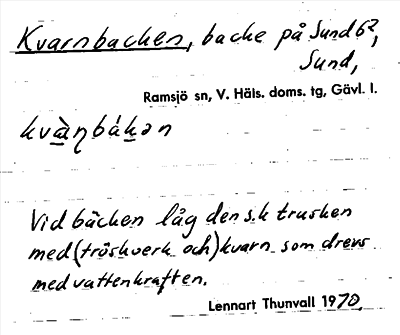 Kvarnbacken, backe på Sund 6²,
Sund,
Ramsjö sn, V. Häls. doms. tg, Gävl. l.
kvà̱ɳbákən
Vid bäcken låg den s.k trusken
med (tröskverk och) kvarn som drevs
med vattenkraften.
Lennart Thunvall 1970.